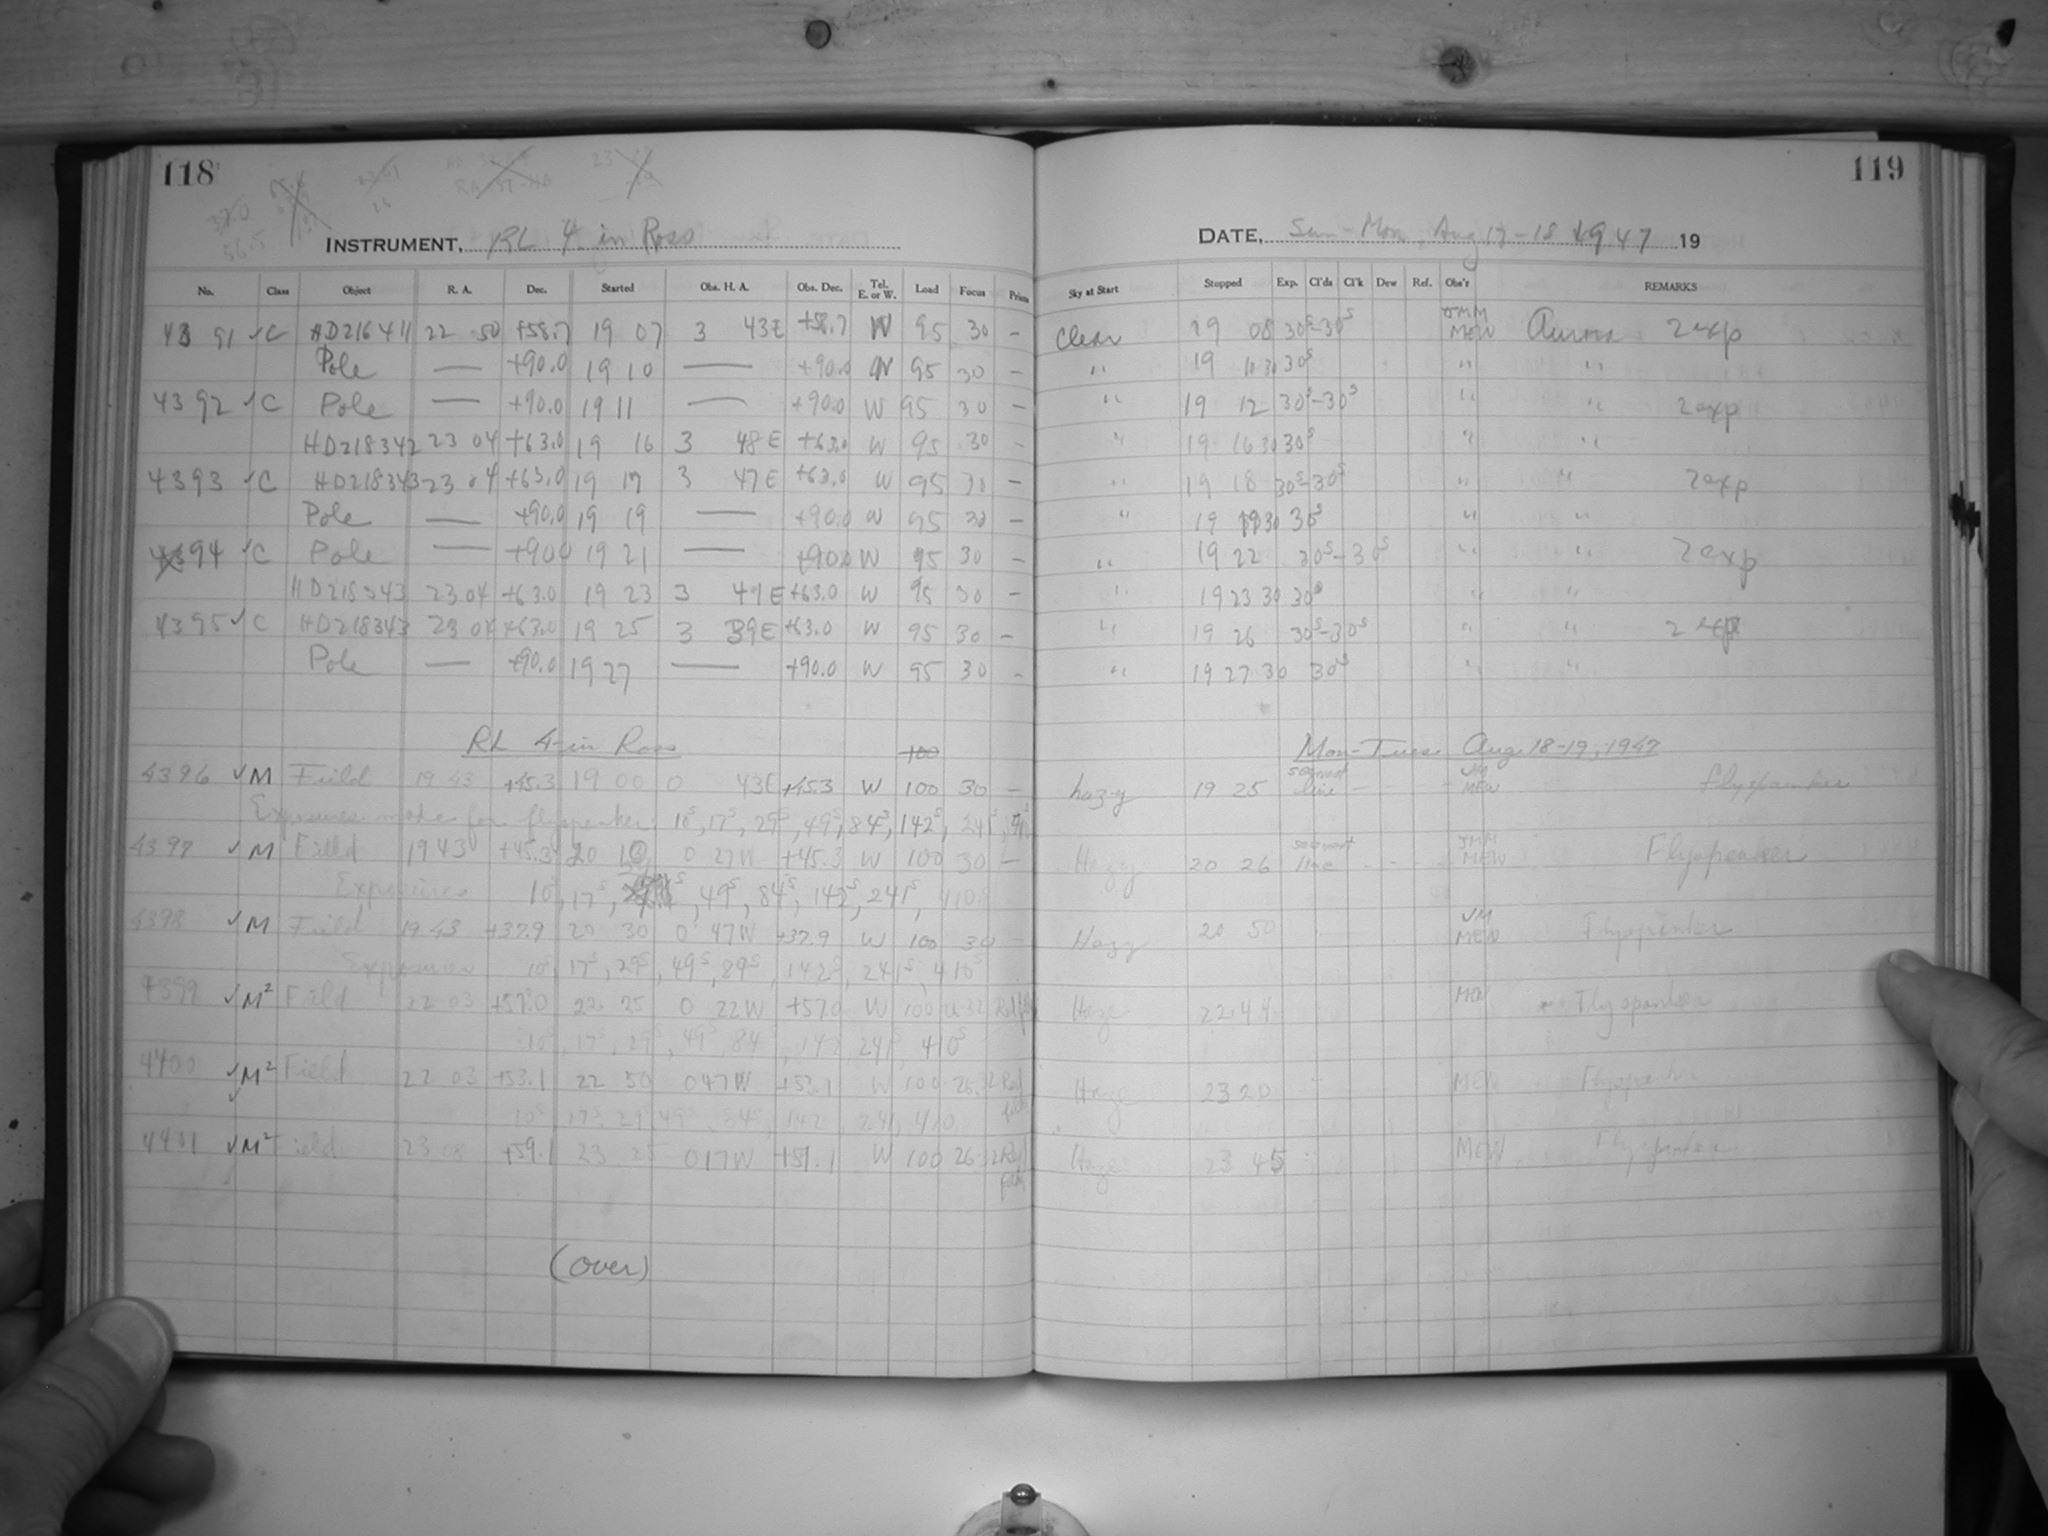 118
INSTRUMENT, RL 4 in Ross
No. Class Object R. A. Dec. Started Obs. H. A. Obs. Dec. Tel. E. or W. Load Focus Prism
43 91 ✓ C HD216411 22 50 +58.7 19 07 3 43E +58.7 W 95 30 -
Pole — +90.0 19 10 — +90.0 W 95 30 -
4392 ✓ C Pole — +90.0 19 11 — +90.0 W 95 30 -
HD218342 23 04 +63.0 19 16 3 48 E +63.0 W 95 30 -
4393 ✓ C HD218343 23 04 +63.0 19 17 3 47E +63.0 W 95 30 -
Pole — +90.0 19 19 — +90.0 W 95 30 -
4394 ✓ C Pole — +90.0 19 21 — +90.0 W 95 30 -
HD218343 23 04 +63.0 19 23 3 41 E +63.0 W 95 30 -
4395 ✓ C HD218343 23 04 +63.0 19 25 3 39E +63.0 W 95 30 -
Pole — +90.0 19 27 — +90.0 W 95 30 -
RL 4-in Ross 100
4396 ✓ M Field 19 43 +45.3 19 00 0 43E +45.3 W 100 30 -
Exposures made for flyspanker: 10s, 17s, 29s, 49s, 84s, 142s, 241s,
4397 ✓ M Field 19 43 +45.3 20 10 0 27W +45.3 W 100 30 -
Exposures 10s, 17s, 49s, 84s, 142s, 241s, 410s
4398 ✓ M Field 19 43 +37.9 20 30 0 47W +37.9 W 100 30 -
Exposures 10s, 17s, 29s, 49s, 89s, 142s, 241s, 410s
4399 ✓ M² Field 22 03 +57.0 22 25 0 22W +57.0 W 100 Red
10s, 17s, 29s, 49s, 84s, 142, 241s, 410s
4400 ✓ M² Field 22 03 +53.1 22 50 0 47W +53.1 W 100 26.32 Red
10s, 17s, 29s, 49s, 84s, 142, 241, 410
4401 ✓ M² Field 23 08 +59.1 23 25 0 17W +59.1 W 100 26.32 Red
(over)
119
DATE, Sun-Mon, Aug 17-18 1947 19
Sky at Start Stopped Exp. Cl'ds Cl'k Dew Ref. Obs'r REMARKS
Clear 19 08 30s-30s JMM MEW Aurora 2 exp
" 19 10 30 30s " "
" 19 12 30s-30s " " 2 exp
" 19 16 30 30s " "
" 19 18 30s-30s " " 2 exp
" 19 19 30 30s " "
" 19 22 30s-30s " " 2 exp
" 19 23 30 30s " "
" 19 26 30s-30s " " 2 exp
" 19 27 30 30s " "
Mon-Tues. Aug. 18-19, 1947
hazy 19 25 line - - - MEW flyspanker
Hazy 20 26 line - - - JMM MEW Flyspanker
Hazy 20 50 JM MEW Flyspanker
Haze 22 44 MEW Flyspanker
Haze 23 20 MEW Flyspanker
Haze 23 45 MEW Flyspanker